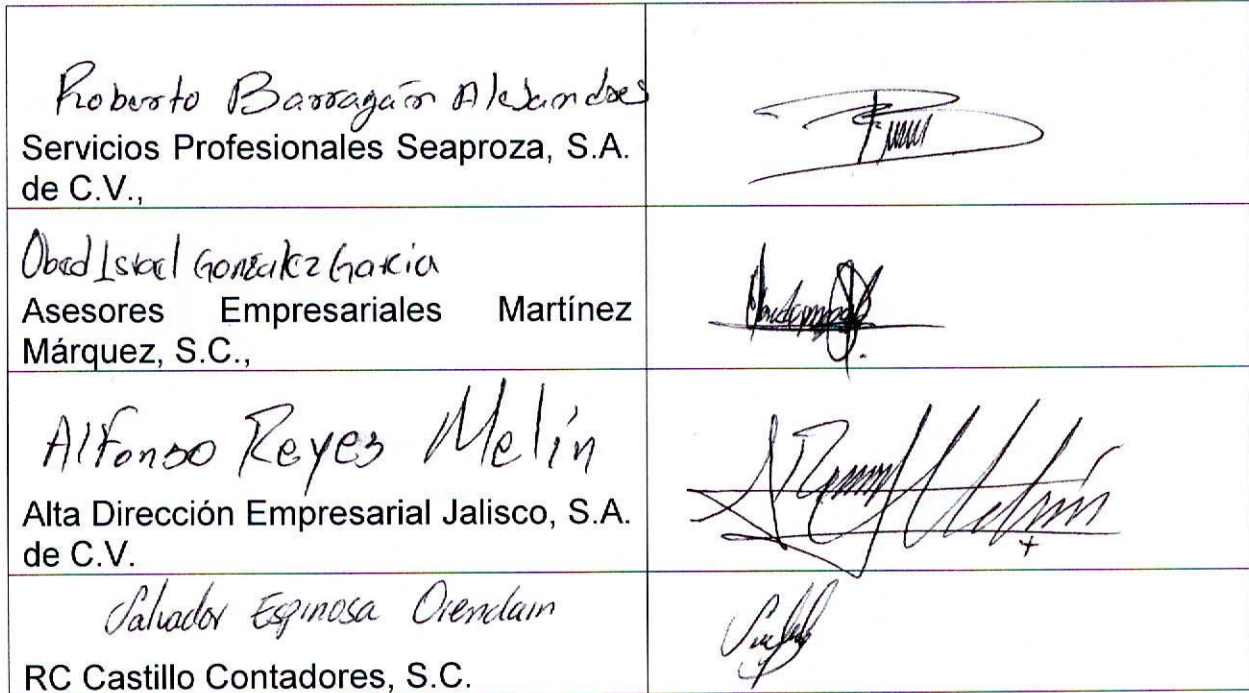 Roberto Barragán Alejandres
Servicios Profesionales Seaproza, S.A.
de C.V.,
Obed Israel González García
Asesores Empresariales Martínez
Márquez, S.C.,
Alfonso Reyes Melín
Alta Dirección Empresarial Jalisco, S.A.
de C.V.
Salvador Espinosa Orendain
RC Castillo Contadores, S.C.